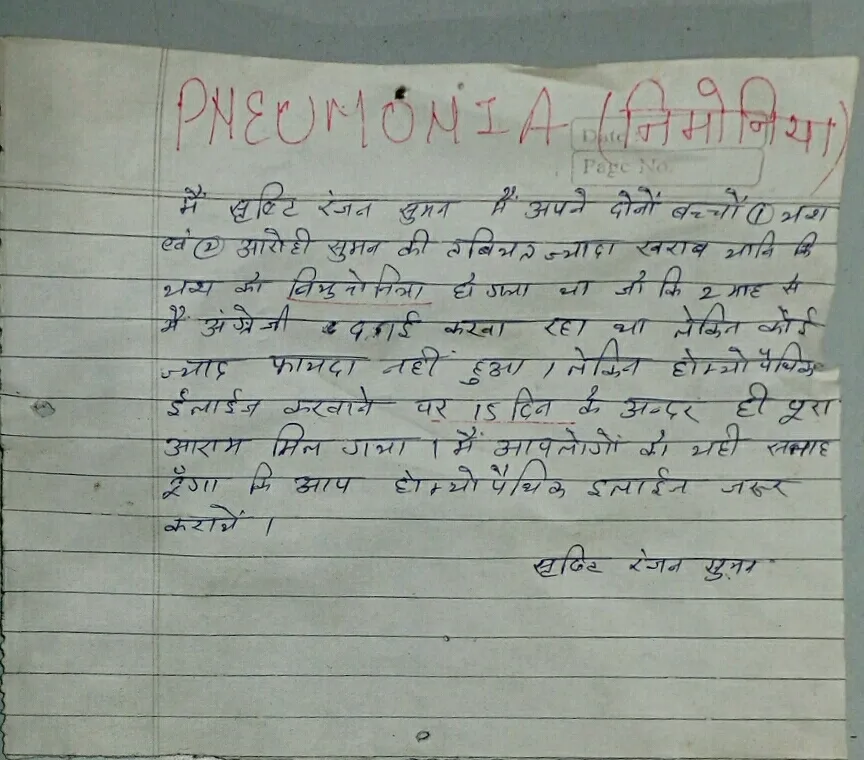 PNEUMONIA (निमोनिया)
Date
Page No.
मैं सृष्टि रंजन सुमन मैं अपने दोनों बच्चों ① यश
एवं ② आरोही सुमन की तबियत ज्यादा खराब यानि कि
यश को निमुनोनिया हो गया था जो कि 2 माह से
मैं अंग्रेजी दवाई करवा रहा था लेकिन कोई
ज्याद फायदा नहीं हुआ । लेकिन होम्योपैथिक
ईलाईज करवाने पर 15 दिन के अन्दर ही पूरा
आराम मिल गया । मैं आपलोगों को यही सलाह
दूँगा कि आप होम्योपैथिक इलाईज जरूर
करायें ।
सृष्टि रंजन सुमन